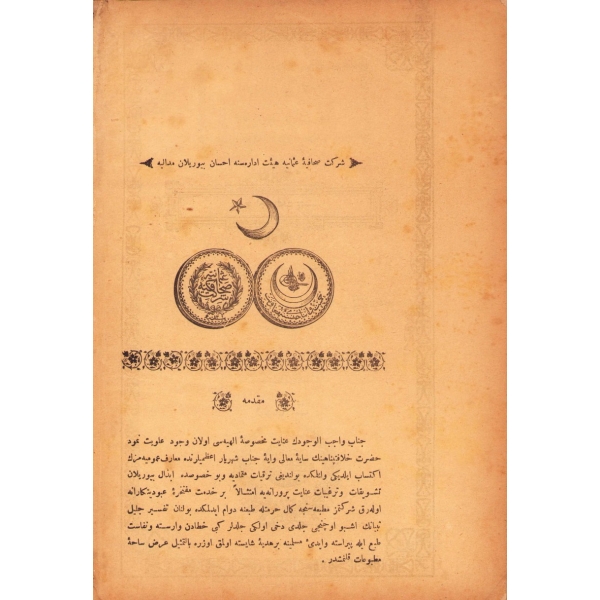 شركت صحافیۀ عثمانیه هیئت اداره‌سنه احسان بیوریلان مدالیه
مقدمه
جناب واجب الوجودك عنایت مخصوصۀ الهیه‌سی اولان وجود علویت نمود
حضرت خلافتپناهینك سایۀ معالی وایۀ جناب شهریار اعظمیلرنده معارف عمومیه‌مزك
اكتساب ایلدیكی وایلمكده بولندیغی ترقیات متمادیه وبو خصوصده ابذال بیوریلان
تشویقات وترغیبات عنایت پرورانه‌یه امتثالاً بر خدمت مفتخرۀ عبودیتكارانه
اوله‌رق شركتمز مطبعه‌سنجه كمال حرمتله طبعنه دوام ایدلمكده بولنان تفسیر جلیل
تبیانك اشبو اوچنجی جلدی دخی اولكی جلدلر كبی خطادن وارسته ونفاست
طبع ایله پیراسته وایدئ مسلمینه برهدیۀ شایسته اولمق اوزره بالتمثیل عرض ساحۀ
مطبوعات قلنمشدر .